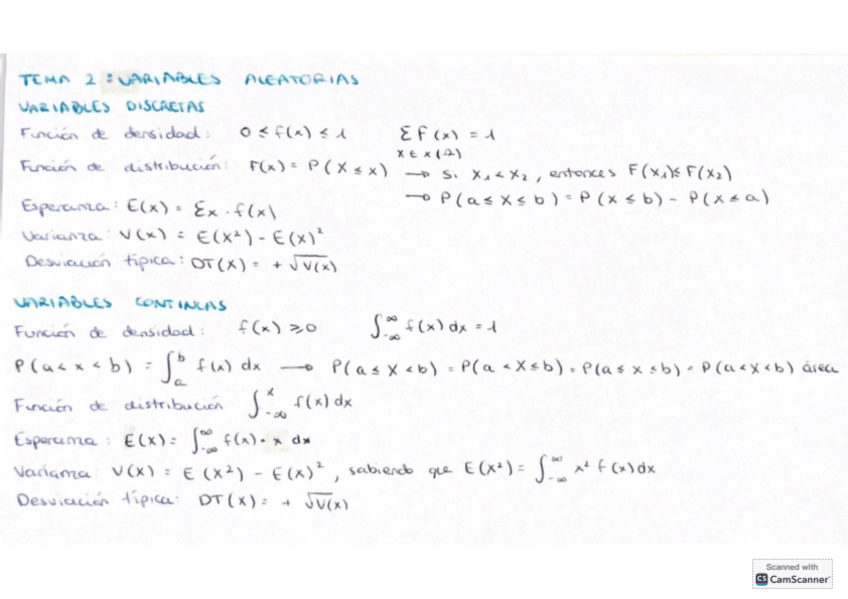 TEMA 2: VARIABLES ALEATORIAS
VARIABLES DISCRETAS
Función de densidad: 0 ≤ f(x) ≤ 1 Σ F(x) = 1
x ∈ x(Ω)
Función de distribución: F(x) = P(X ≤ x) → Si x₁ < x₂, entonces F(x₁) ≤ F(x₂)
→ P(a ≤ X ≤ b) = P(x ≤ b) - P(X ≤ a)
Esperanza: E(x) = Σx · f(x)
Varianza: V(x) = E(X²) - E(x)²
Desviación típica: DT(X) = + √V(x)
VARIABLES CONTINUAS
Función de densidad: f(x) ≥ 0 ∫_{-∞}^{∞} f(x) dx = 1
P(a < x < b) = ∫_a^b f(x) dx → P(a ≤ X < b) = P(a < X ≤ b) = P(a ≤ x ≤ b) = P(a < X < b) área
Función de distribución ∫_{-∞}^{x} f(x) dx
Esperanza: E(x) = ∫_{-∞}^{∞} f(x) · x dx
Varianza: V(X) = E(X²) - E(X)², sabiendo que E(X²) = ∫_{-∞}^{∞} x² f(x) dx
Desviación típica: DT(X) = + √V(x)
Scanned with
CS CamScanner